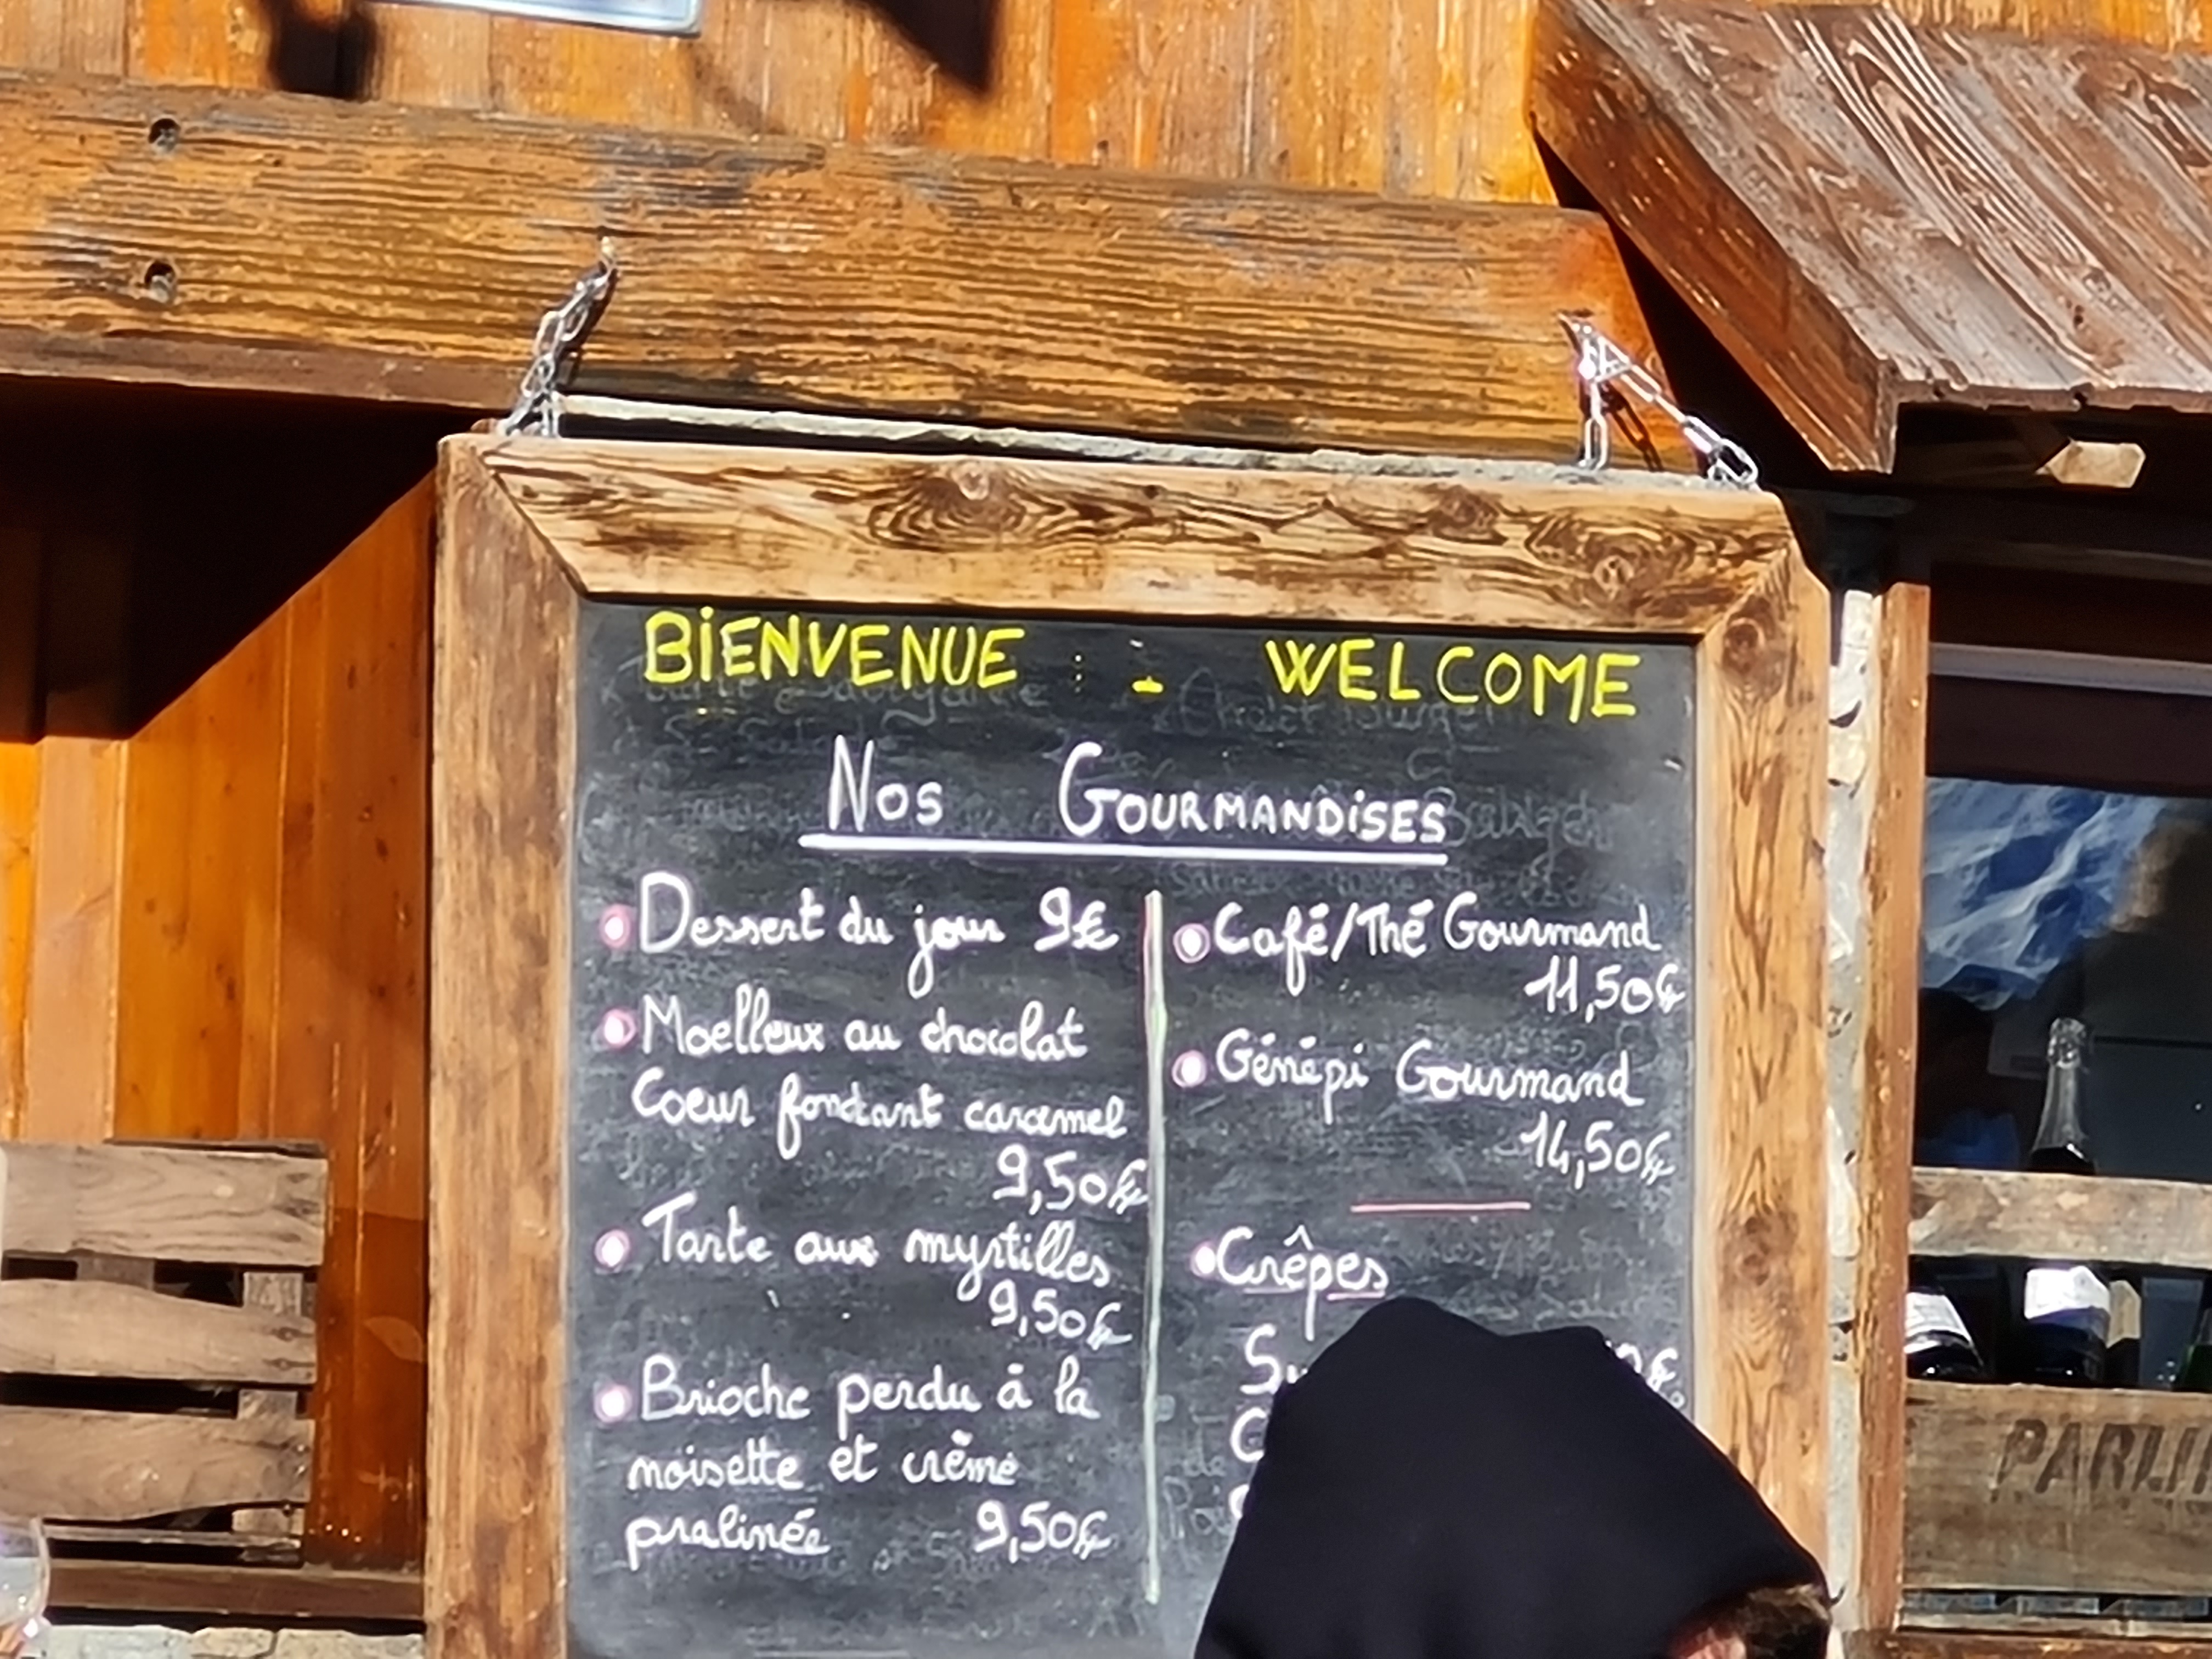 BIENVENUE - WELCOME
NOS GOURMANDISES
Dessert du jour 9€
Moelleux au chocolat
Coeur fondant caramel
9,50€
Tarte aux myrtilles
9,50€
Brioche perdu à la
noisette et crème
pralinée 9,50€
Café/Thé Gourmand
11,50€
Génépi Gourmand
14,50€
Crêpes